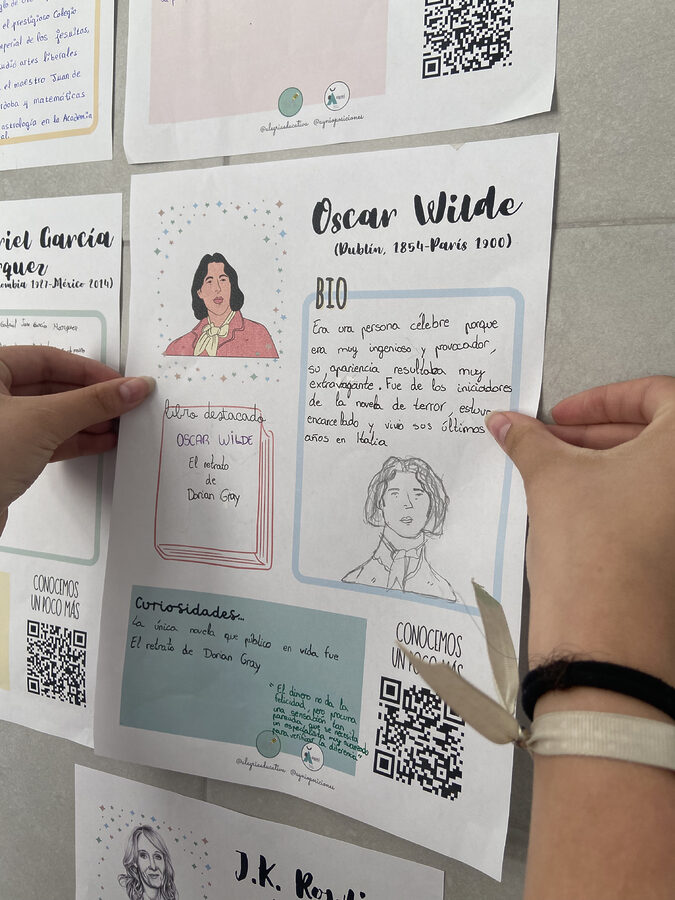 el prestigioso Colegio
mperial de los jesuitas,
udió artes liberales
el maestro Juan de
rdoba y matemáticas
astrología en la Academia
@alegriaeducativa @ayrioposiciones
riel García
rquez
ombia 1927-México 2014)
Gabriel José García Márquez
CONOCIMOS
UN POCO MÁS
Oscar Wilde
(Dublín, 1854-París 1900)
BIO
Era una persona célebre porque
era muy ingenioso y provocador,
su apariencia resultaba muy
extravagante. Fue de los iniciadores
de la novela de terror, estuvo
encarcelado y vivió sus últimos
años en Italia
libro destacado
OSCAR WILDE
El retrato
de
Dorian Gray
Curiosidades...
La única novela que público en vida fue
El retrato de Dorian Gray
"El dinero no da la
felicidad, pero procura
una sensación tan
parecida, que se necesita
un especialista muy avanzado
para verificar la diferencia"
@alegriaeducativa @ayrioposiciones
CONOCIMOS
UN POCO MÁS
J.K. Rowli